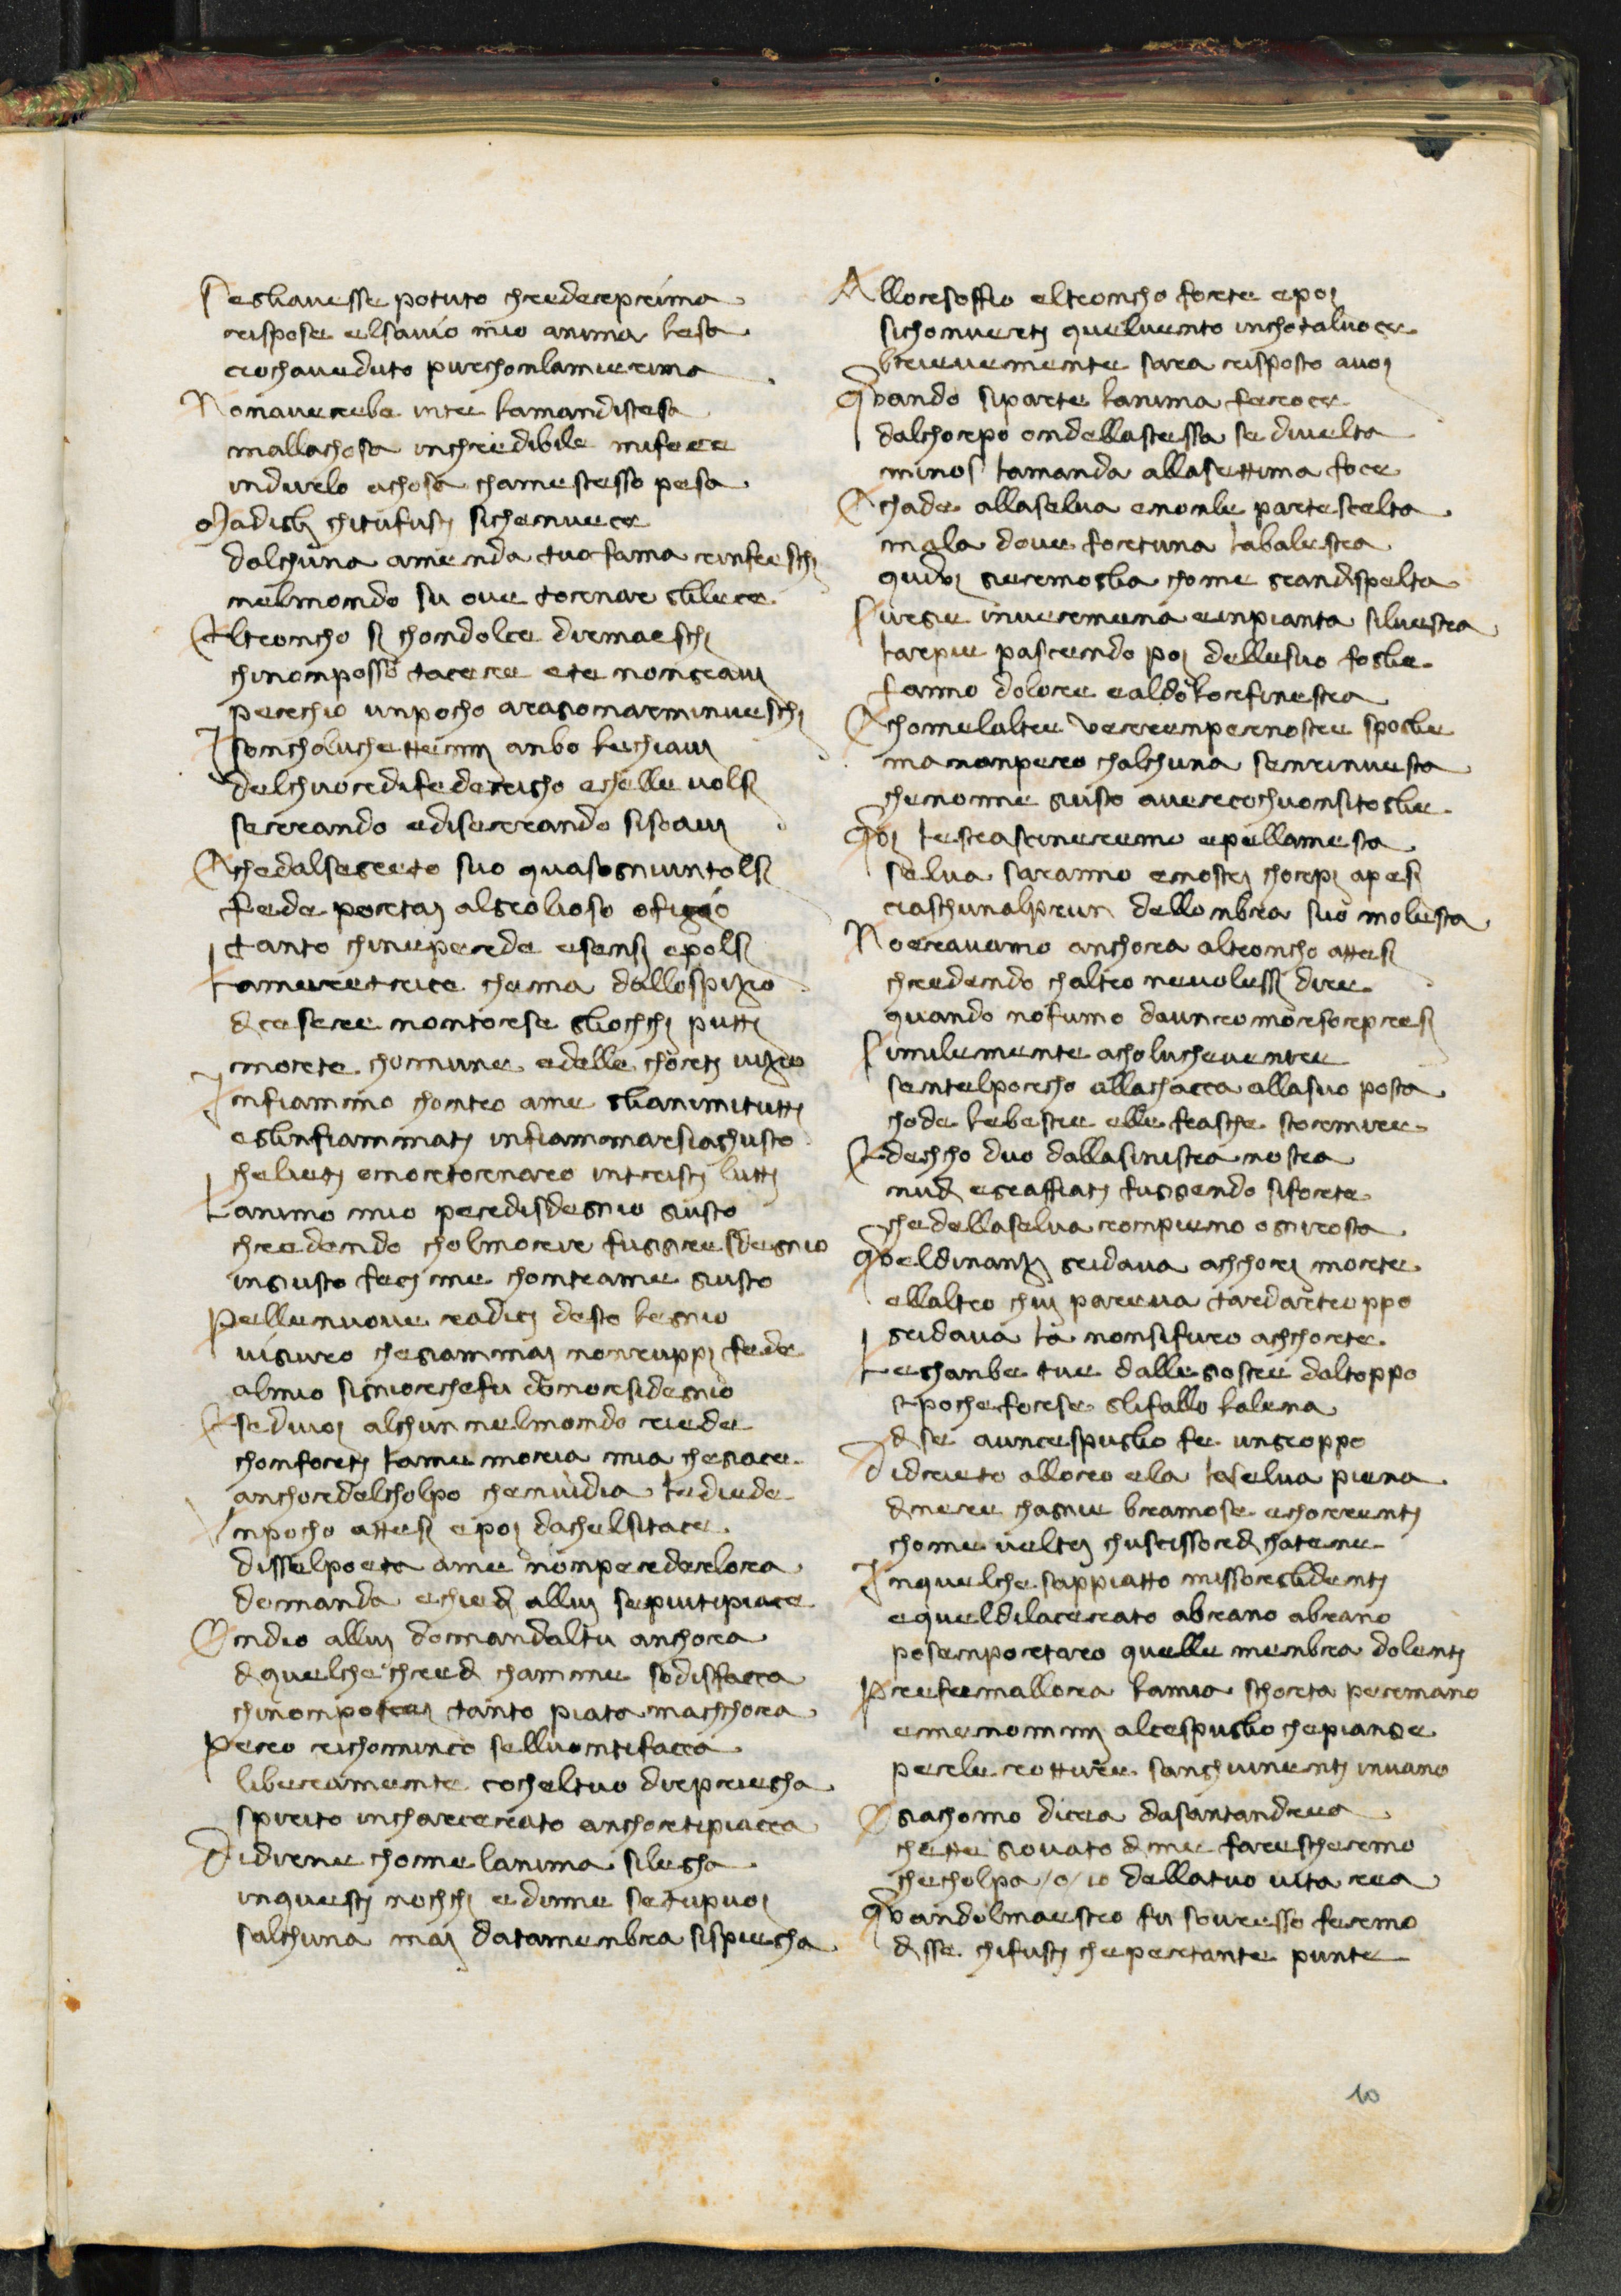 Segliavesse potuto chredereprima
rispose elsavio mio anima lesa
ciochaveduto purchonlamierima
Nonaverebe inte lamandistesa
mallachosa inchredibile mifece
indurlo achosa chamestesso pesa
Madigli chitufusti sichenvece
dalchuna amenda tuafama rinfreschi
nelmondo su ove tornare glilece
Eltroncho si chondolce dirmaeschi
chinomposso tacere ete nongravi
perchio unpocho aragonarminveschi
Isoncholuchettenni anbo lechiavi
delchuoredifedericho echelle volsi
serrando ediserrando sisoavi
Chedalsegreto suo quasogniuntolsi
fede portai algrolioso ofizio
tanto chineperde esensi epolsi
Lameretrice chemai dallospizio
diciesere nontorse gliocchi putti
morte chomune edelle chorti vizio
Infiammo chontro ame glianimitutti
eglinfiammati infiammarsiaghusto
chelieti onortornaro intristi lutti
Lanimo mio perdisdegnio giusto
chredendo cholmorire fuggiresdegnio
ingiusto feci me chontrame giusto
Pellenuove radici desto legnio
vigiuro chegiammai nonruppi fede
almio signiorechefu donoresidegnio
Esedivoi alchun nelmondo riede
chonforti lame moria mia chegiace
anchordelcholpo chenvidia lediede
Unpocho attesi epoi dachelsitace
disselpoeta ame nonperderlora
domanda echiedi allui sepiutipiace
Ondio allui domandaltu anchora
di quelche chredi chamme sodisfaccia
chinompotrei tanto pieta machhora
Perro richomincio selluontifaccia
liberamente cocheltuo dirpriegha
spirito incharcerato anchortipiaccia
Didirne chome lanima silegha
inquesti nochhi edinne setupuoi
salchuna mai datamenbra sispiegha
Allorsoffio eltroncho forte epoi
sichonverti quelvento inchotalvoce
brievemente sara risposto avoi
Quando siparte lanima feroce
dalchorpo ondellastessa se divelta
minos lamanda allasettima foce
Chade allaselva enonle partescelta
mala dove fortuna labalestra
quivi germoglia chome grandispelta
Surge invermena einpianta silvestra
larpie pascendo poi dellesuo foglie
fanno dolore ealdolorfinestra
Chomelaltre verrenpernostre spoglie
manonpero chalchuna senrinvesta
chenonne giusto averecochuomsitoglie
Qui lestrascineremo epellamesta
selva saranno enostri chorpi apesi
ciaschunalprun dellonbra suo molesta
Noeravamo anchora altroncho attesi
chredendo chaltro nevolessi dire
quando nofumo daunromoresorpresi
Similemente acholuchevenire
sentelporcho ellachaccia allasuo posta
chode lebestie elle frasche stormire
Edechho duo dallasinistra nostra
nudi egraffiati fuggendo siforte
chedellaselva rompieno ognirosta
Queldinanzi gridava achhorri morte
ellaltro chui pareva tardartroppo
gridava la nonsifuro achhorte
Leghanbe tue dallegiostre daltoppo
epocheforse glifallo lalena
di se auncespuglio fe ungroppo
Didrieto alloro ela laselva piena
dinere chagnie bramose echorrenti
chome veltri chuscissordi chatene
Inquelche sappiatto missorglidenti
equeldilacerato abrano abrano
poisemportaro quelle menbra dolenti
Presemallora lamia schorta permano
emenommi alcespuglio chepiange
perle rotture sanghuinenti invano
Ogiachomo dicea dasantandrea
chette giovato di me fareschermo
checholpa /o/ io dellatuo vita rea
Quandolmaestro fu sovresso fermo
disse chifusti chepertante punte
10